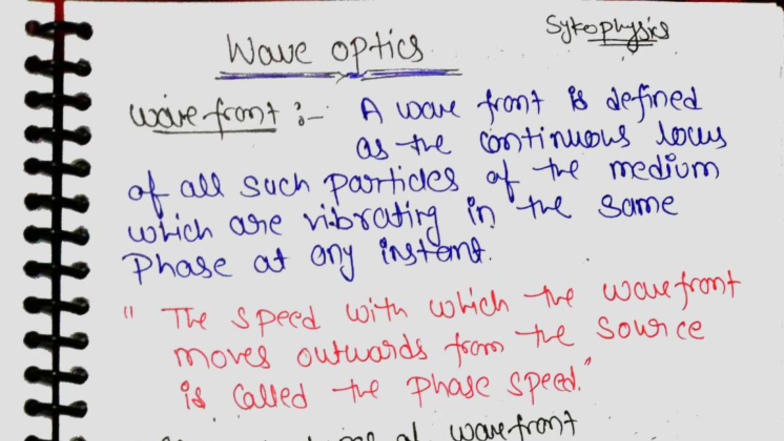 Sykophysics
Wave optics
wave front :- A wave front is defined
as the continuous locus
of all such particles of the medium
which are vibrating in the same
Phase at any instant.
" The speed with which the wavefront
moves outwards from the source
is called the phase speed."
of wavefront